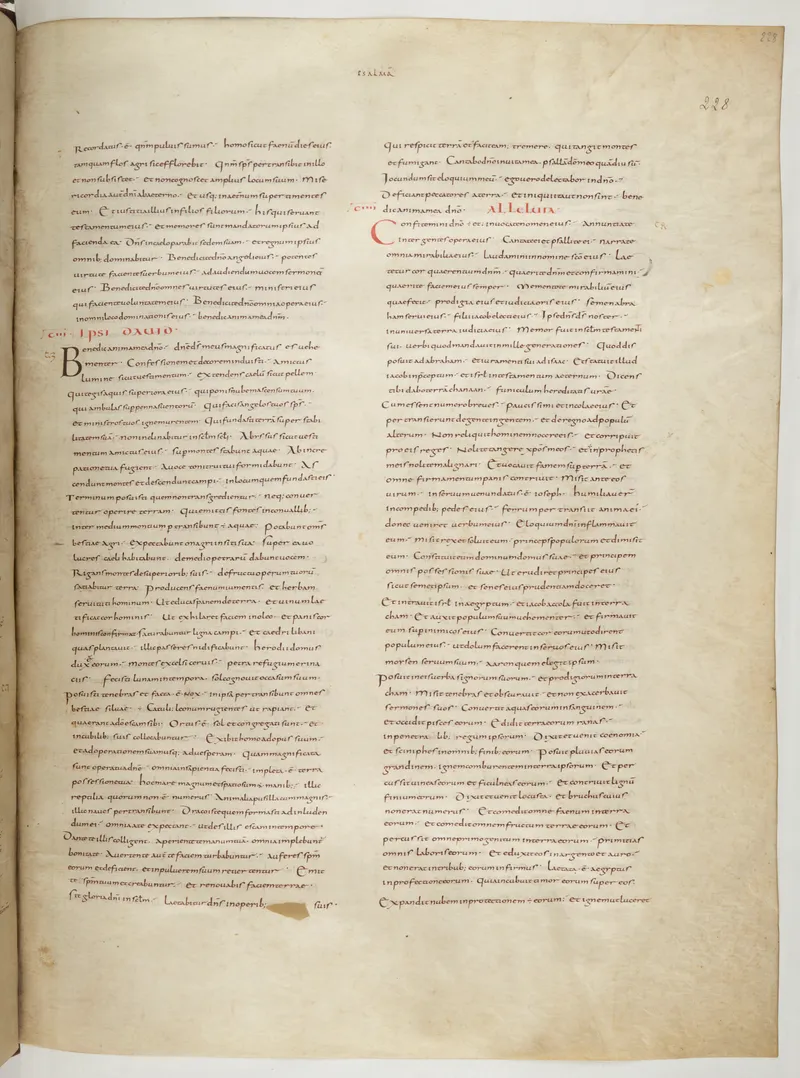 PSALMĀ
228
228
Recordatus·ē· qnm puluis sumus· homo sicut faenū dies eius
tamquam flos agri sic efflorebit· Qnm sps pertransibit in illo
et non subsistet· Et non cognoscet amplius locum suum· Mise
ricordia aut dni ab aeterno· Et usq; in aeternum super timentes
eum· Et iustitia illius in filios filiorum· his qui seruant
testamentum eius· Et memores sunt mandatorum ipsius ad
facienda ea· Dns in caelo parabit sedem suam· et regnum ipsius
omnib; dominabitur· Benedicite dno angeli eius· potentes
uirtute facientes uerbum eius· ad audiendum uocem sermonū
eius· Benedicite dno omnes uirtutes eius· ministri eius
qui facitis uoluntatem eius· Benedicite dno omnia opera eius·
in omni loco dominationis eius· benedic anima mea dnm·
·ciii· IPSI DAVID
Benedic anima mea dno· dne ds meus magnificatus es uehe
menter· Confessionem et decorem induisti· Amictus
lumine sicut uestimentum· extendens caelū sicut pellem
Qui tegis aquis superiora eius· qui ponis nubem ascensum tuum·
qui ambulas super pennas uentorū· Qui facis angelos tuos sps·
et ministros tuos ignem urentem· Qui fundasti terrā super stabi
litatem suā· non inclinabitur in sclm scli· Abyssus sicut uesti
mentum amictus eius· super montes stabunt aquae· Ab incre
patione tua fugient· A uoce tonitrui tui formidabunt· As
cendunt montes et descendunt campi· in locum quem fundasti eis
Terminum posuisti quem non transgredientur· neq; conuer
tentur operire terram· Qui emittis fontes in conuallib;
inter medium montium pertransibunt aquae· Potabunt oms
bestiae agri· expectabunt onagri in siti sua· Super ea uo
lucres caeli habitabunt· de medio petrarū dabunt uocem·
Rigans montes de superiorib; suis· de fructu operum tuorū
satiabitur terra· Producens faenum iumentis· et herbam
seruituti hominum· Ut educas panem de terra· et uinum lae
tificat cor hominis· Ut exhilaret faciem in oleo· et panis cor
hominis confirmat· Saturabuntur ligna campi· et caedri libani
quas plantauit· illic passeres nidificabunt· herodii domus
dux ē eorum· montes excelsi ceruis· petra refugium erina
ciis· Fecit lunam in tempora· sol cognouit occasum suum·
Posuisti tenebras et facta·ē· nox· in ipsa pertransibunt omnes
bestiae siluae· Catuli leonum rugientes ut rapiant· et
quaerant a do escam sibi· Ortus·ē· sol et congregati sunt· et
in cubilib; suis collocabuntur· Exibit homo ad opus suum·
et ad operationem suam usq; ad uesperam· Quam magnificata
sunt opera tua dne· omnia in sapientia fecisti· impleta·ē· terra
possessione tua· hoc mare magnum et spatiosum manib;· illic
reptilia quorum non·ē· numerus· Animalia pusilla cum magnis·
illic naues pertransibunt· Draco iste quem formasti ad inluden
dum ei· omnia a te expectant· ut des illis escam in tempore·
Dante te illis colligent· Aperiente te manum tuā· omnia implebunt
bonitate· Auertente aut te faciem turbabuntur· Auferes spm
eorum et deficient· et in puluerem suum reuertentur· Emit
te spm tuum et creabuntur· Et renouabis faciem terrae·
Sit gloria dni in sclm· Laetabitur dns in operib; suis·
Qui respicit terrā et facit eam tremere· qui tangit montes
et fumigant· Cantabo dno in uita mea· psallā do meo quādiu sū·
Iocundum sit ei eloquium meū· ego uero delectabor in dno·
Deficiant peccatores a terra· et iniqui ita ut non sint· bene
·ciiii· dic anima mea dno· ALLELUIA·
Confitemini dno· et inuocate nomen eius· Annuntiate
inter gentes opera eius· Cantate ei et psallite ei· narrate
omnia mirabilia eius· Laudamini in nomine sco eius· Lae
tetur cor quaerentium dnm· quaerite dnm et confirmamini·
quaerite faciem eius semper· Mementote mirabiliū eius
quae fecit· prodigia eius et iudicia oris eius· Semen abra
ham serui eius· filii iacob electi eius· Ipse dns ds noster·
in uniuersa terra iudicia eius· Memor fuit in sclm testamenti
sui· uerbi quod mandauit in mille generationes· Quod dis
posuit ad abraham· et iuramenti sui ad isac· Et statuit illud
iacob in pceptum· et isrl in testamentum aeternum· Dicens
tibi dabo terrā chanaan· funiculum hereditatis urae·
Cum essent numero breues· paucissimi et incolae eius· Et
pertransierunt de gente in gentem· et de regno ad populū
alterum· Non reliquit hominem nocere eis· et corripuit
pro eis reges· Nolite tangere xpos meos· et in prophetis
meis nolite malignari· Et uocauit famem super terrā· et
omne firmamentum panis contriuit· Misit ante eos
uirum· in seruum uenundatus·ē· ioseph· humiliauer
in compedib; pedes eius· ferrum pertransit animā ei·
donec ueniret uerbum eius· Eloquium dni inflammauit
eum· Misit rex et soluit eum· princeps populorum et dimisit
eum· Constituit eum dominum domus suae· et principem
omnis possessionis suae· Ut erudiret principes eius
sicut semetipsum· et senes eius prudentiam doceret·
Et intrauit isrl in aegyptum· et iacob accola fuit in terra
cham· Et auxit populum suum uehementer· et firmauit
eum super inimicos eius· Conuertit cor eorum ut odirent
populum eius· ut dolum facerent in seruos eius· Misit
mosen seruum suum· Aaron quem elegit ipsum·
Posuit in eis uerba signorum suorum· et prodigiorum in terra
cham· Misit tenebras et obscurauit· et non exacerbauit
sermones suos· Conuertit aquas eorum in sanguinem·
et occidit pisces eorum· Edidit terra eorum ranas·
in penetralib; regum ipsorum· Dixit et uenit coenomia·
et sciniphes in omnib; finib; eorum· Posuit pluuias eorum
grandinem· ignem comburentem in terra ipsorum· Et per
cussit uineas eorum et ficulneas eorum· et contriuit lignū
finium eorum· Dixit et uenit locusta· et bruchus cuius
non erat numerus· Et comedit omne faenum in terra
eorum· et comedit omnem fructum terrae eorum· Et
percussit omne primogenitum in terra eorum· primitias
omnis laboris eorum· Et eduxit eos in argento et auro·
et non erat in tribub; eorum infirmus· Laetata·ē· aegyptus
in profectione eorum· Quia incubuit timor eorum super eos·
Expandit nubem in protectionem eorum· et ignem ut luceret